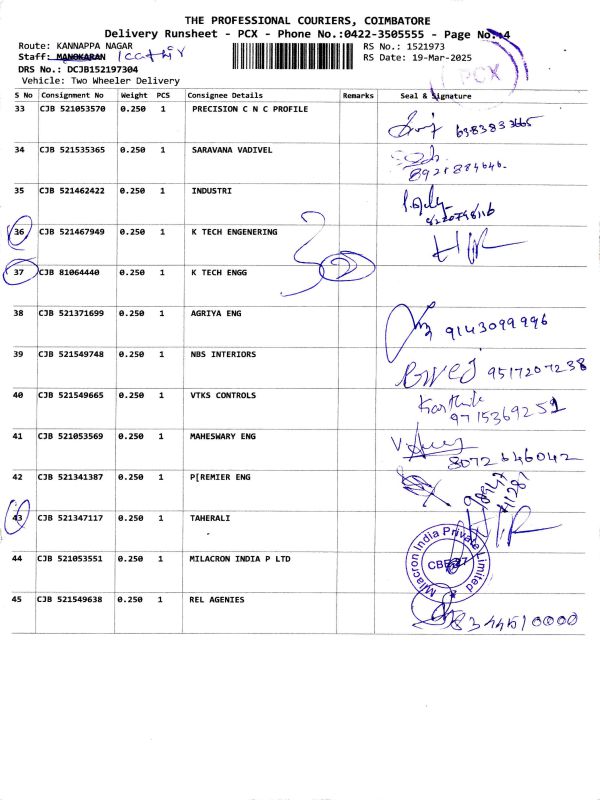 THE PROFESSIONAL COURIERS, COIMBATORE
Delivery Runsheet - PCX - Phone No.:0422-3505555 - Page No.:4
Route: KANNAPPA NAGAR
RS No.: 1521973
Staff: MANOKARAN
RS Date: 19-Mar-2025
DRS No.: DCJB152197304
Vehicle: Two Wheeler Delivery
PCX
S No Consignment No Weight PCS Consignee Details Remarks Seal & Signature
33 CJB 521053570 0.250 1 PRECISION C N C PROFILE 6383833665
34 CJB 521535365 0.250 1 SARAVANA VADIVEL
35 CJB 521462422 0.250 1 INDUSTRI
36 CJB 521467949 0.250 1 K TECH ENGENERING
37 CJB 81064440 0.250 1 K TECH ENGG 2
38 CJB 521371699 0.250 1 AGRIYA ENG 9143099996
39 CJB 521549748 0.250 1 NBS INTERIORS 9517207238
40 CJB 521549665 0.250 1 VTKS CONTROLS Karthik
9715369259
41 CJB 521053569 0.250 1 MAHESWARY ENG
8072646042
42 CJB 521341387 0.250 1 P[REMIER ENG
43 CJB 521347117 0.250 1 TAHERALI
44 CJB 521053551 0.250 1 MILACRON INDIA P LTD
Milacron India Private Limited
45 CJB 521549638 0.250 1 REL AGENIES 8344510000